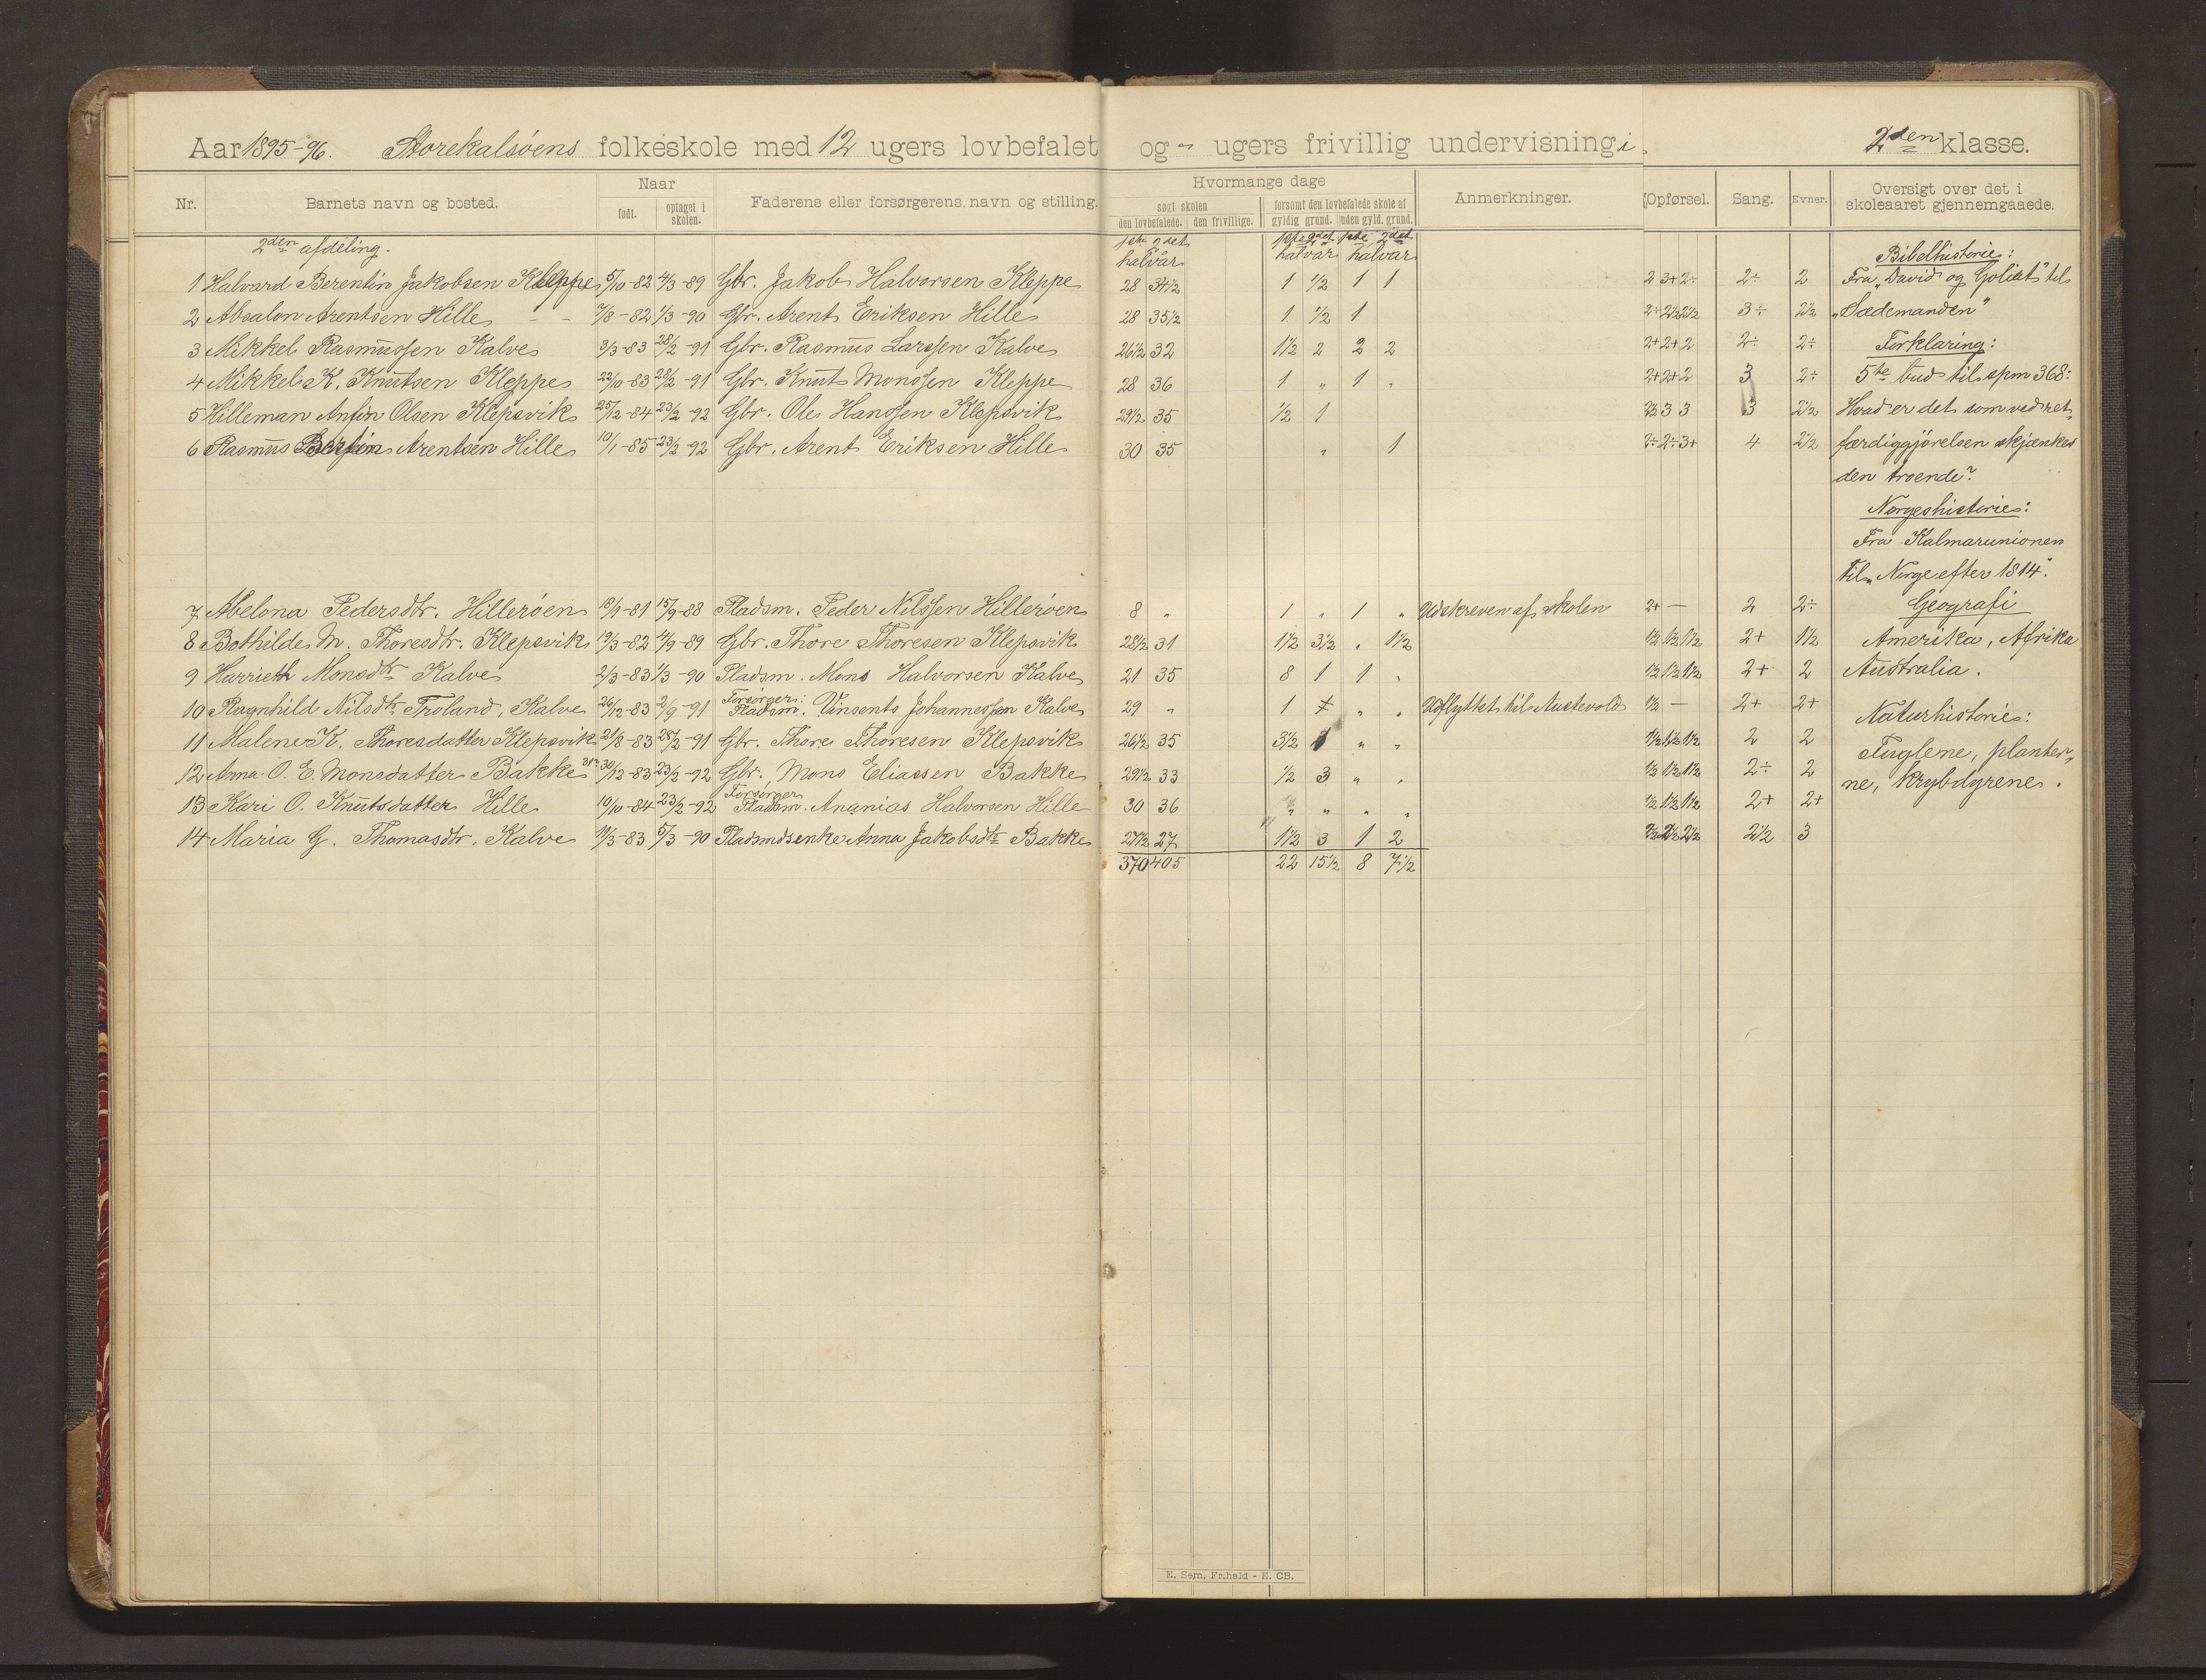 Aar 1895-96. Storekalsøens folkeskole med 12 ugers lovbefalet og - ugers frivillig undervisning i 2den klasse.
Nr. Barnets navn og bosted. Naar Faderens eller forsørgerens navn og stilling. Hvormange dage Anmerkninger. Opførsel. Sang. Evner. Oversigt over det i skoleaaret gjennemgaaede.
født. optaget i skolen. søgt skolen forsømt den lovbefalede skole af
den lovbefalede. den frivillige. gyldig grund. uden gyld. grund.
2den afdeling. 1ste 2det halvår 1ste 2det halvår 1ste 2det halvår Bibelhistorie:
1 Halvard Berentin Jakobsen Kleppe 5/10-82 4/3-89 Gbr. Jakob Halvorsen Kleppe 28 34½ 1 ½ 1 1 2 3+ 2÷ 2÷ 2 Fra "David og Goliat" til
2 Absalon Arentsen Hille 7/8-82 1/3-90 Gbr. Arent Eriksen Hille 28 35½ 1 ½ 1 2÷ 2½ 2½ 3÷ 2½ "Sædemanden"
3 Mikkel Rasmussen Kalve 3/3-83 28/2-91 Gbr. Rasmus Larssen Kalve 26½ 32 1½ 2 2 2 2+ 2+ 2 2÷ 2÷ Forklaring:
4 Mikkel K. Knutsen Kleppe 22/10-83 28/2-91 Gbr. Knut Monssen Kleppe 28 36 1 " 1 " 2+ 2+ 2 3 2÷ 5te bud til spm 368:
5 Hilleman Anfin Olsen Klepsvik 25/12-84 23/2-92 Gbr. Ole Hanssen Klepsvik 29½ 35 ½ 1 2½ 3 3 3 2½ Hvad er det som ved ret-
6 Rasmus Bertin Arentsen Hille 10/1-85 23/2-92 Gbr. Arent Eriksen Hille 30 35 " 1 2÷ 2÷ 3+ 4 2½ færdiggjørelsen skjænkes
den troende?
Norgeshistorie:
Fra Kalmarunionen
til "Norge efter 1814".
7 Abelona Pedersdtr. Hillerøen 18/1-81 15/9-88 Pladsm. Peder Nilssen Hillerøen 8 " 1 " 1 " Udskreven af skolen 2+ — 2 2÷ Geografi
8 Bothilde M. Thoresdtr. Klepsvik 19/3-82 4/9-89 Gbr. Thore Thoresen Klepsvik 28½ 31 1½ 3½ " 1½ 1½ 1½ 1½ 2+ 1½ Amerika, Afrika
9 Harrieth Monsdtr Kalve 2/3-83 1/3-90 Pladsm. Mons Halvorsen Kalve 21 35 8 1 1 " 1½ 1½ 1½ 2+ 2 Australia.
10 Ragnhild Nilsdtr Troland, Kalve 26/12-83 2/9-91 Forsørger: Pladsm. Vinsents Johannessen Kalve 29 " 1 " " Udflyttet til Austevold 1½ — 2+ 2+ Naturhistorie:
11 Malene K. Thoresdatter Klepsvik 21/8-83 28/2-91 Gbr. Thore Thoresen Klepsvik 26½ 35 3½ 1 " " 1½ 1½ 1½ 2 2 Fuglene, planter-
12 Anna O. E. Monsdatter Bakke 30/12-83 23/2-92 Gbr. Mons Eliassen Bakke 29½ 33 ½ 3 " " 1½ 1½ 1½ 2÷ 2 ne, krybdyrene.
13 Kari O. Knutsdatter Hille 10/10-84 23/2-92 Forsørger Pladsm. Ananias Halvorsen Hille 30 36 " " " " 1½ 1½ 1½ 2+ 2+
14 Maria G. Thomasdtr. Kalve 11/3-83 5/3-90 Pladsmdsenke Anna Jakobsdtr Bakke 27½ 27 1½ 3 1 2 2½ 2½ 2½ 2½ 3
370 405 22 15½ 8 7½
E. Sem, Fr.hald - E. CB.